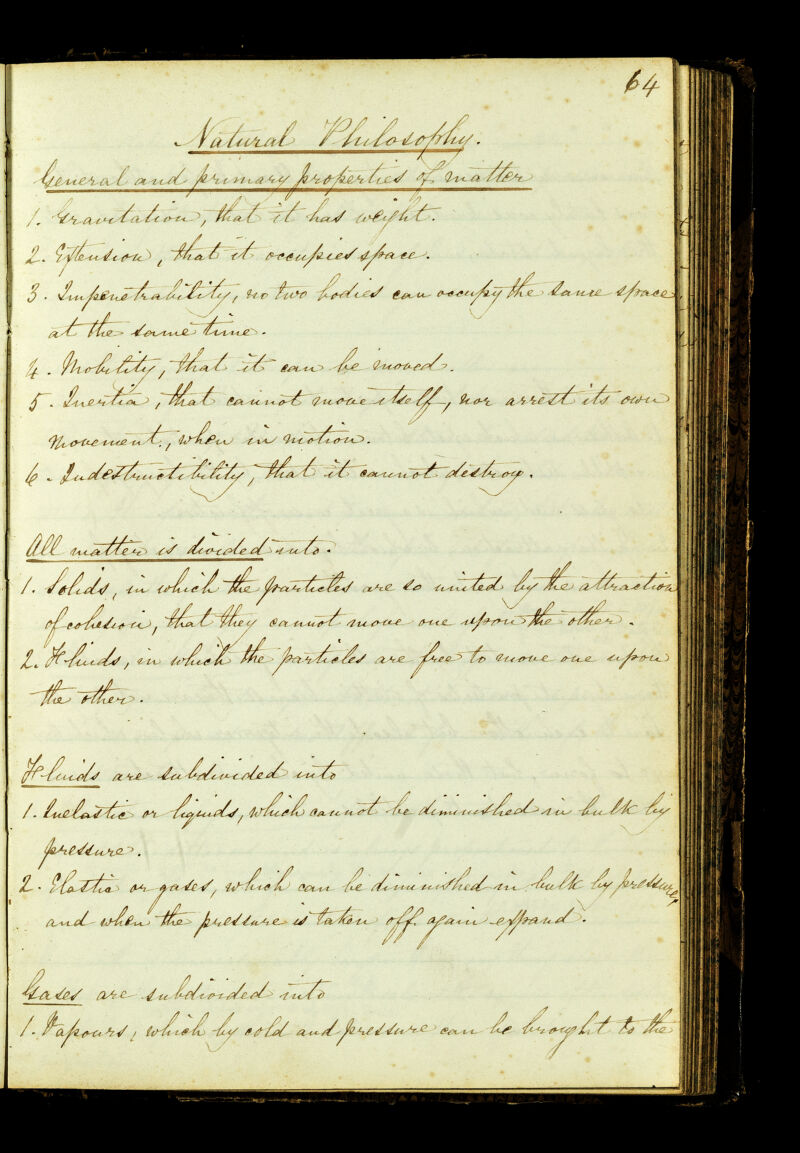 64
Natural Philosophy.
General and primary properties of matter
1. Gravitation, that it has weight.
2. Extension, that it occupies space.
3. Impenetrability, no two bodies can occupy the same space
at the same time.
4. Mobility, that it can be moved.
5. Inertia, that cannot move itself, nor arrest its own
movement, when in motion.
6. Indestructibility, that it cannot destroy.
All matter is divided into.
1. Solids, in which the particles are so united by the attraction
of cohesion, that they cannot move one upon the other.
2. Fluids, in which the particles are free to move one upon
the other.
Fluids are subdivided into
1. Inelastic or liquids, which cannot be diminished in bulk by
pressure.
2. Elastic or gases, which can be diminished in bulk by pressure,
and when the pressure is taken off again expand.
Gases are subdivided into
1. Vapours, which by cold and pressure can be brought to the